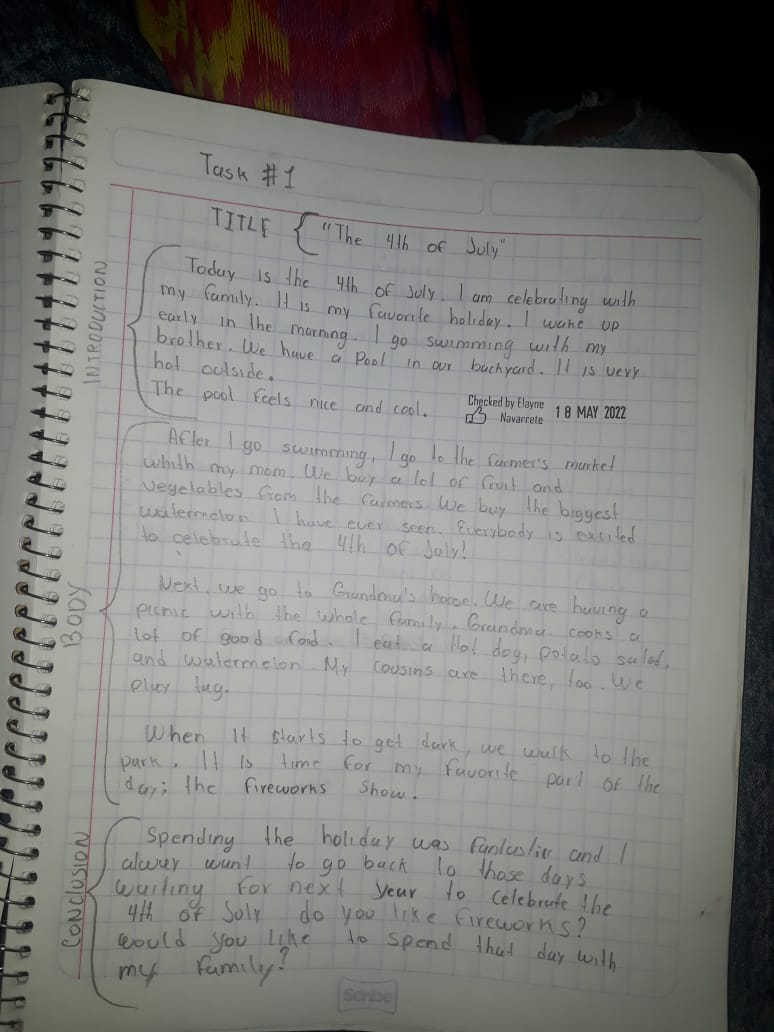 Task #1
TITLE { "The 4th of July"
INTRODUCTION
Today is the 4th of July. I am celebrating with
my family. It is my favorite holiday. I wake up
early in the morning. I go swimming with my
brother. We have a Pool in our backyard. It is very
hot outside.
The pool feels nice and cool.
Checked by Elayne
Navarrete
18 MAY 2022
BODY
After I go swimming, I go to the farmer's market
whith my mom. We buy a lot of fruit and
vegetables from the farmers We buy the biggest
watermelon I have ever seen. Everybody is excited
to celebrate the 4th of July!
Next, we go to Grandma's house. We are having a
picnic with the whole family. Grandma cooks a
lot of good food. I eat a Hot dog, potato salad,
and watermelon. My cousins are there, too. We
play tag.
When It starts to get dark, we walk to the
park. It is time for my favorite part of the
day; the fireworks show.
CONCLUSION
Spending the holiday was fantastic and I
want to go back to those days
waiting for next year to celebrate the
4th of July do you like fireworks?
would you like to spend that day with
my family?
Scribe